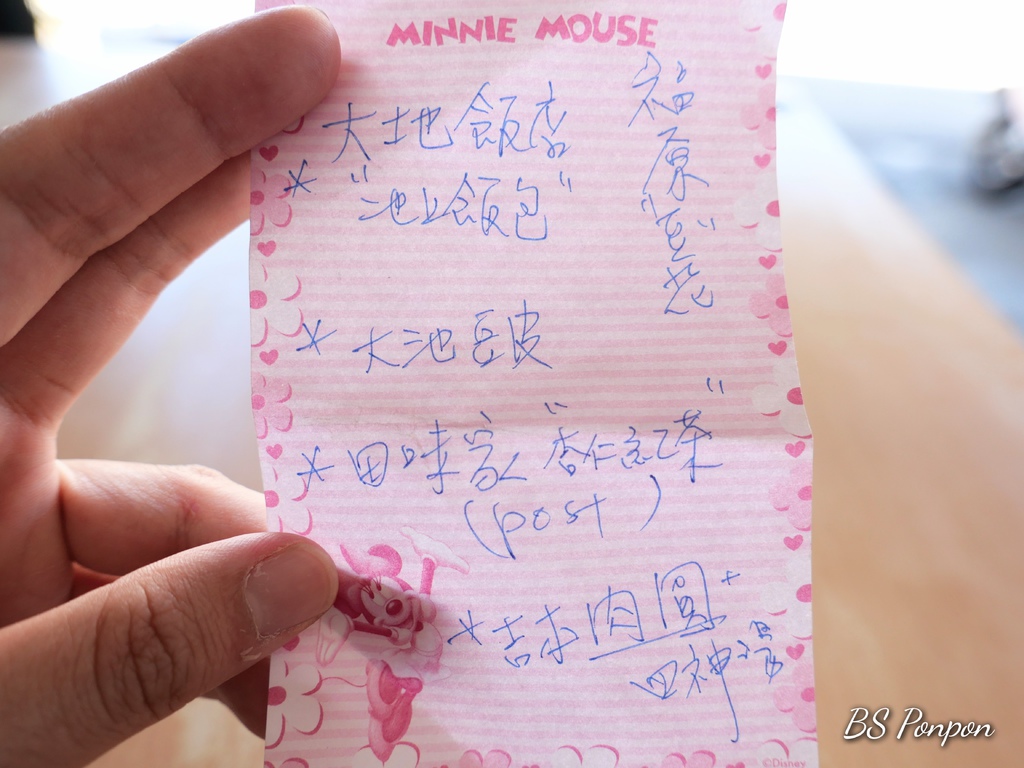 MINNIE MOUSE
福原"豆花"
大地飯店
* "池上飯包"
* 大池豆皮
* 田味家"杏仁紅茶"
(post)
* 吉本肉圓+
四神湯
©Disney
BS Ponpon